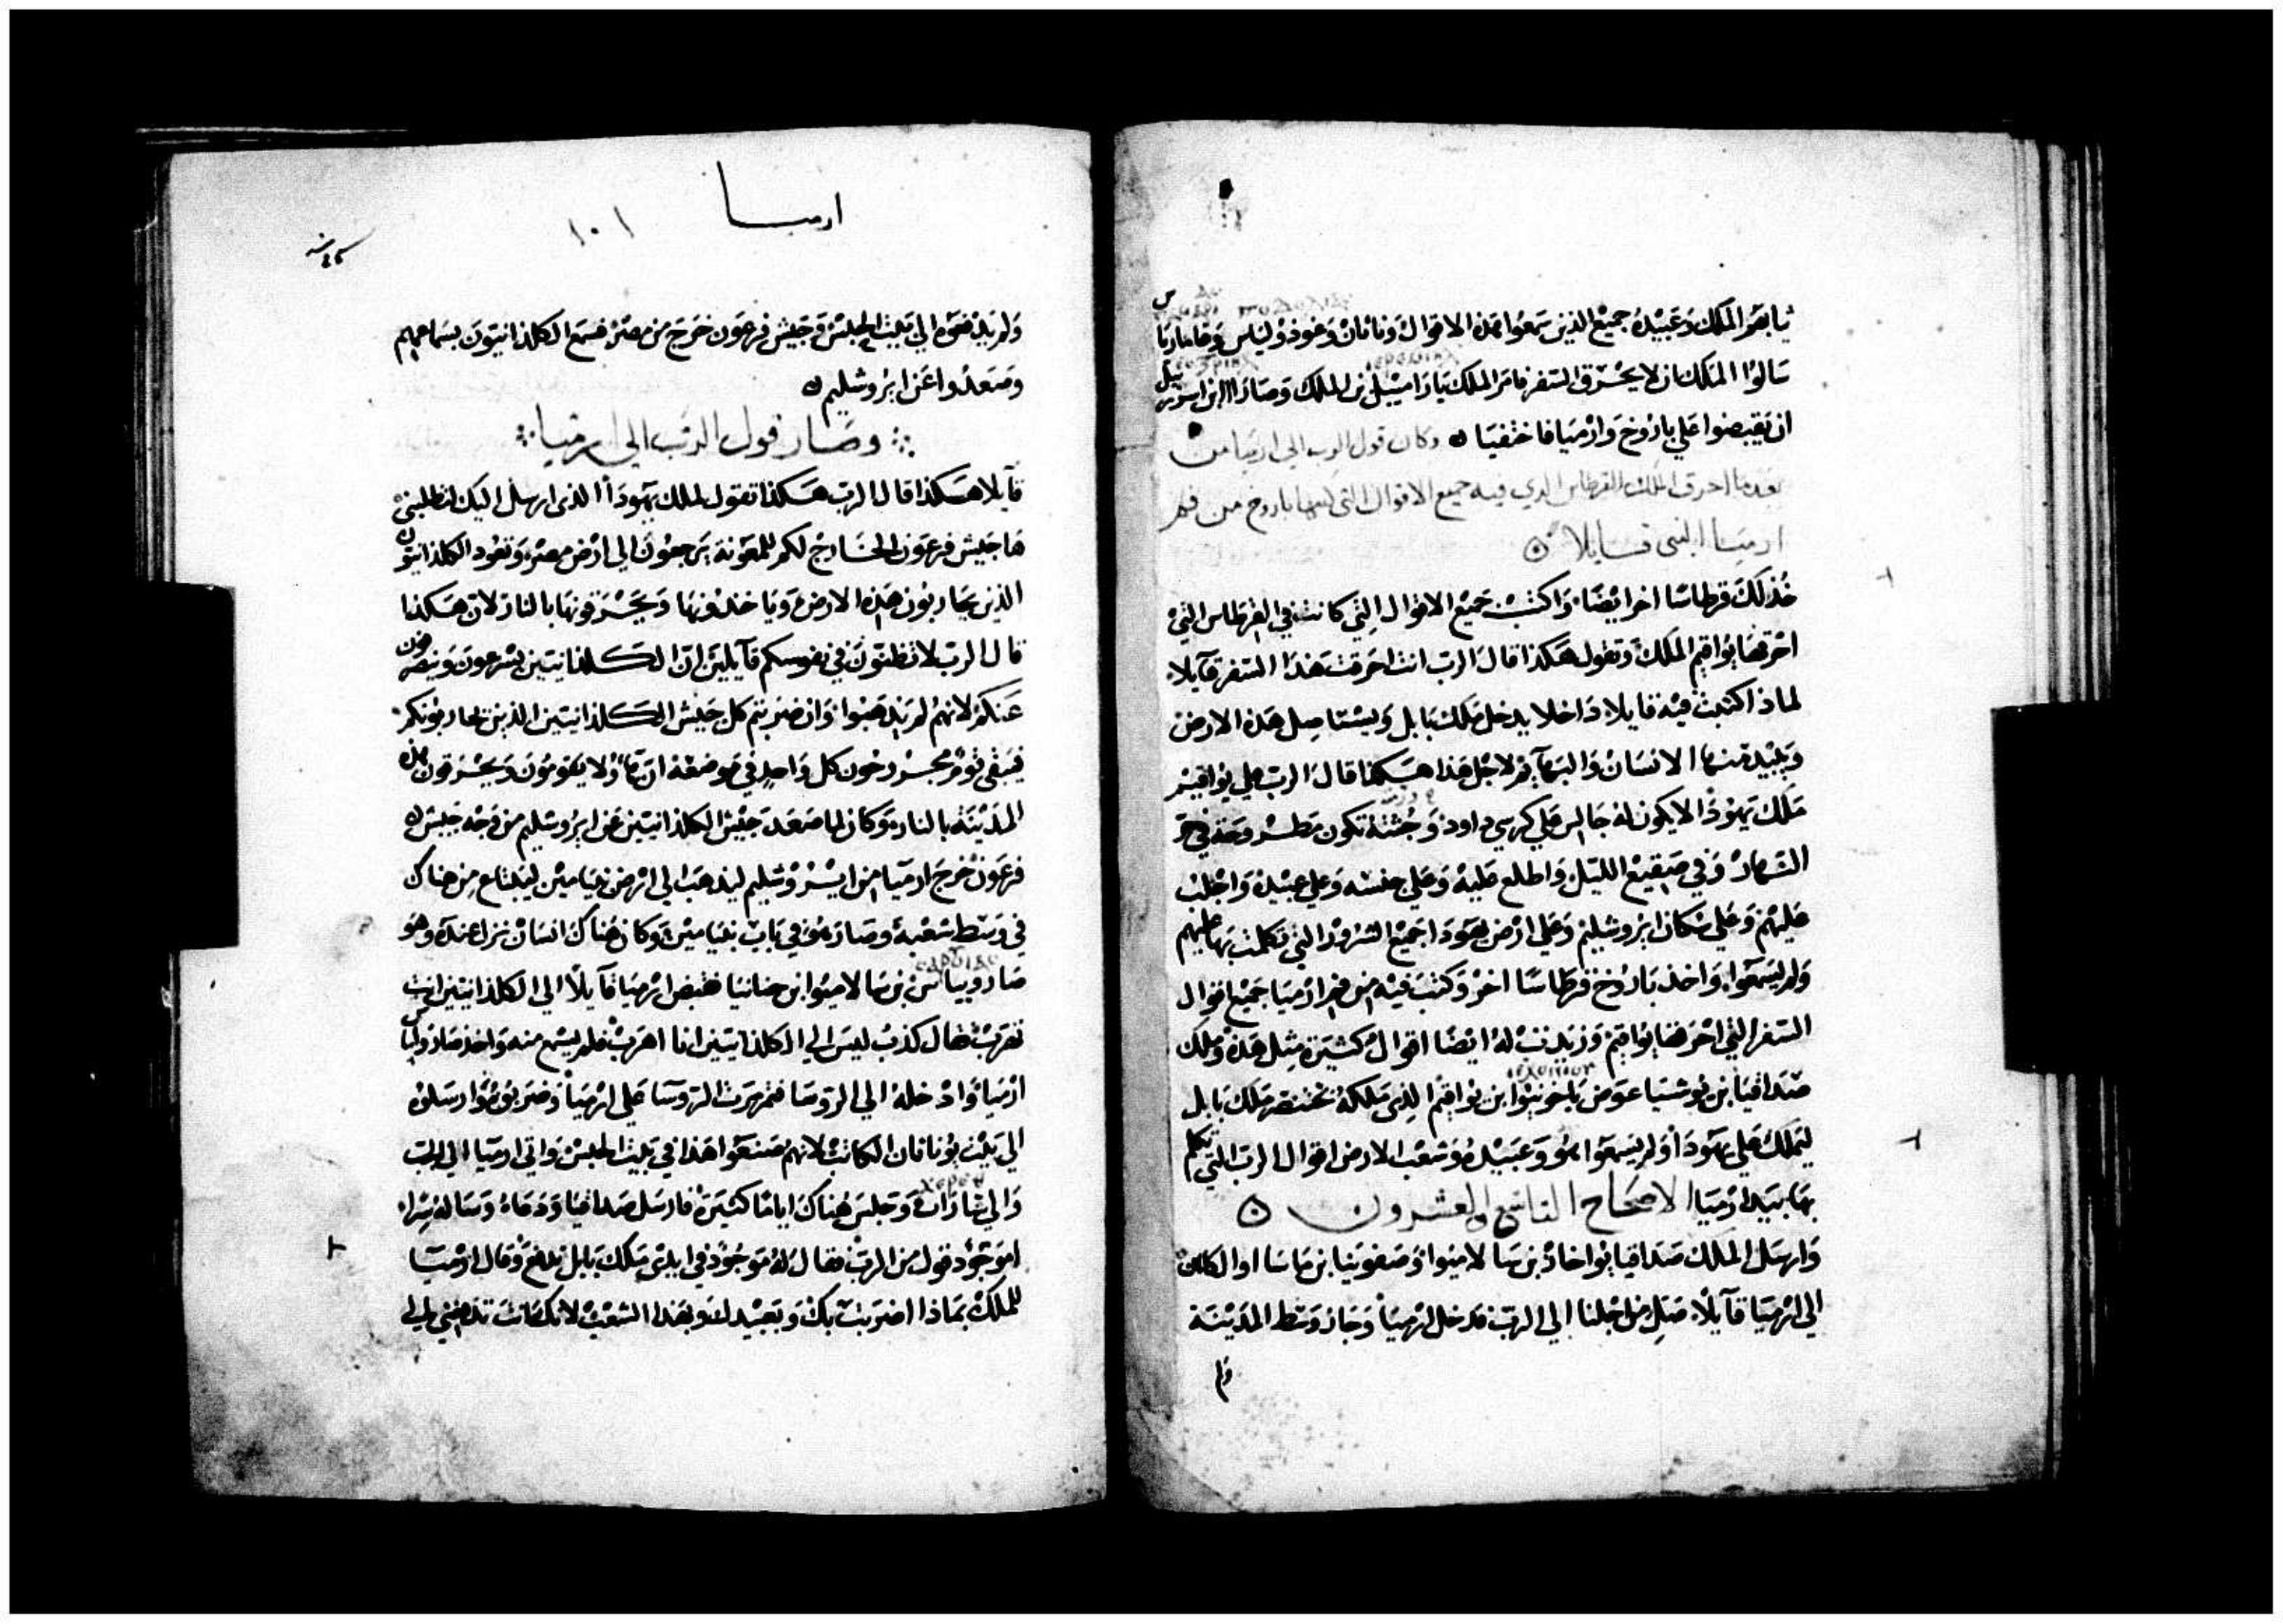 ثيابهم الملك وعبيده جميع الذين سمعوا هذه الاقوال وناثان وغودولياس وغاماريا
سالوا الملك ان لا يحرق السفر فامر الملك يارامييل بن الملك وصارااا ابن اسرييل
ان يقبضوا علي باروخ وارميا فاختفيا وكان قول الرب الي ارميا من
بعد ما احرق الملك القرطاس الدي فيه جميع الاقوال التي كتبها باروخ من فم
ارميا النبي قايلا
خذ لك قرطاسا اخر ايضا واكتب جميع الاقوال التي كانت في القرطاس التي
احرقها يواقيم الملك وتقول هكذا قال الرب انت احرقت هذا السفر قآيلا
لماذا كتبت فيه قايلا داخلا يدخل ملك بابل ويستاصل هذه الارض
ويبيد منها الانسان والبهآيم لاجل هذا هكذا قال الرب علي يواقيم
ملك يهوذا لا يكون له جالس علي كرسي داود وجثته تكون مطروحة في حر
النهار وفي صقيع الليل واطلع عليه وعلي جنسه وعلي عبيده واجلب
عليهم وعلي سكان ايروشليم وعلي ارض يهودا جميع الشرور التي تكلمت بها عليهم
ولم يسمعوا واخذ باروخ قرطاسا اخر وكتب فيه من فم ارميا جميع اقوال
السفر التي احرقها يواقيم وزيدت له ايضا اقوال كثيرة مثل هذه وملك
صداقيا بن يوشيا عوض ياخونيوا ابن يواقيم الذي ملكه بختنصر ملك بابل
ليملك علي يهودا ولم يسمعوا هو وعبيده وشعب الارض اقوال الرب التي تكلم
بها بيد ارميا الاصحاح التاسع والعشرون
وارسل الملك صداقيا يواخاذ بن سالاميوا وصفونيا بن ماسااو الكاهن
الي ارميا قآيلا صل من اجلنا الي الرب فدخل ارميا وجاز وسط المدينة
ولم
ارميا
١٠١
ولم يدفعوه الي بيت الحبس وجيش فرعون خرج من مصر فسمع الكلدانيون بسماعهم
وصعدوا عن ايروشليم
وصار قول الرب الي ارميا
قآيلا هكذا قال الرب هكذا تقول لملك يهودا الذي ارسل اليك لتطلبني
ها جيش فرعون الخارج لكم للمعونة يرجعون الي ارض مصر وتعود الكلدانيون
الذين يحاربون هذه الارض وياخذونها ويحرقونها بالنار لان هكذا
قال الرب لا تظنون في نفوسكم قآيلين ان الكلدانيين يسرعون وينصرفون
عنكم لانهم لم يذهبوا وان ضربتم كل جيش الكلدانيين الذين يحاربونكم
فيبقي قوم مجروحون كل واحد في موضعه ان هاولا يقومون ويحرقون هذه
المدينة بالنار وكان لما صعد جيش الكلدانيين عن ايروشليم من وجه جيش
فرعون خرج ارميا من ايروشليم ليذهب الي ارض بنيامين ليبتاع من هناك
في وسط شعبه وصار هو في باب بنيامين وكان هناك انسان نزل عنده وهو
صاروبياس بن سالاميوا بن حنانيا فقبض ارميا قآيلا الي الكلدانيين انت
تهرب فقال كذب ليس الي الكلدانيين انا اهرب فلم يسمع منه واخذ صارولياس
ارميا وادخله الي الروسا فتمررت الروسا علي ارميا وضربوه وارسلوه
الي بيت يوناثان الكاتب لانهم صنعوا هذا في بيت الحبس واتي ارميا الي الجب
والي شاراث وجلس هناك اياما كثيرة فارسل صداقيا ودعاه وساله سرا
اموجود قول من الرب فقال له موجود في ايدي ملك بابل تدفع وقال ارميا
للملك بماذا اضريت بك وبعبيدك وبهذا الشعب لانك انت تدفعني الي